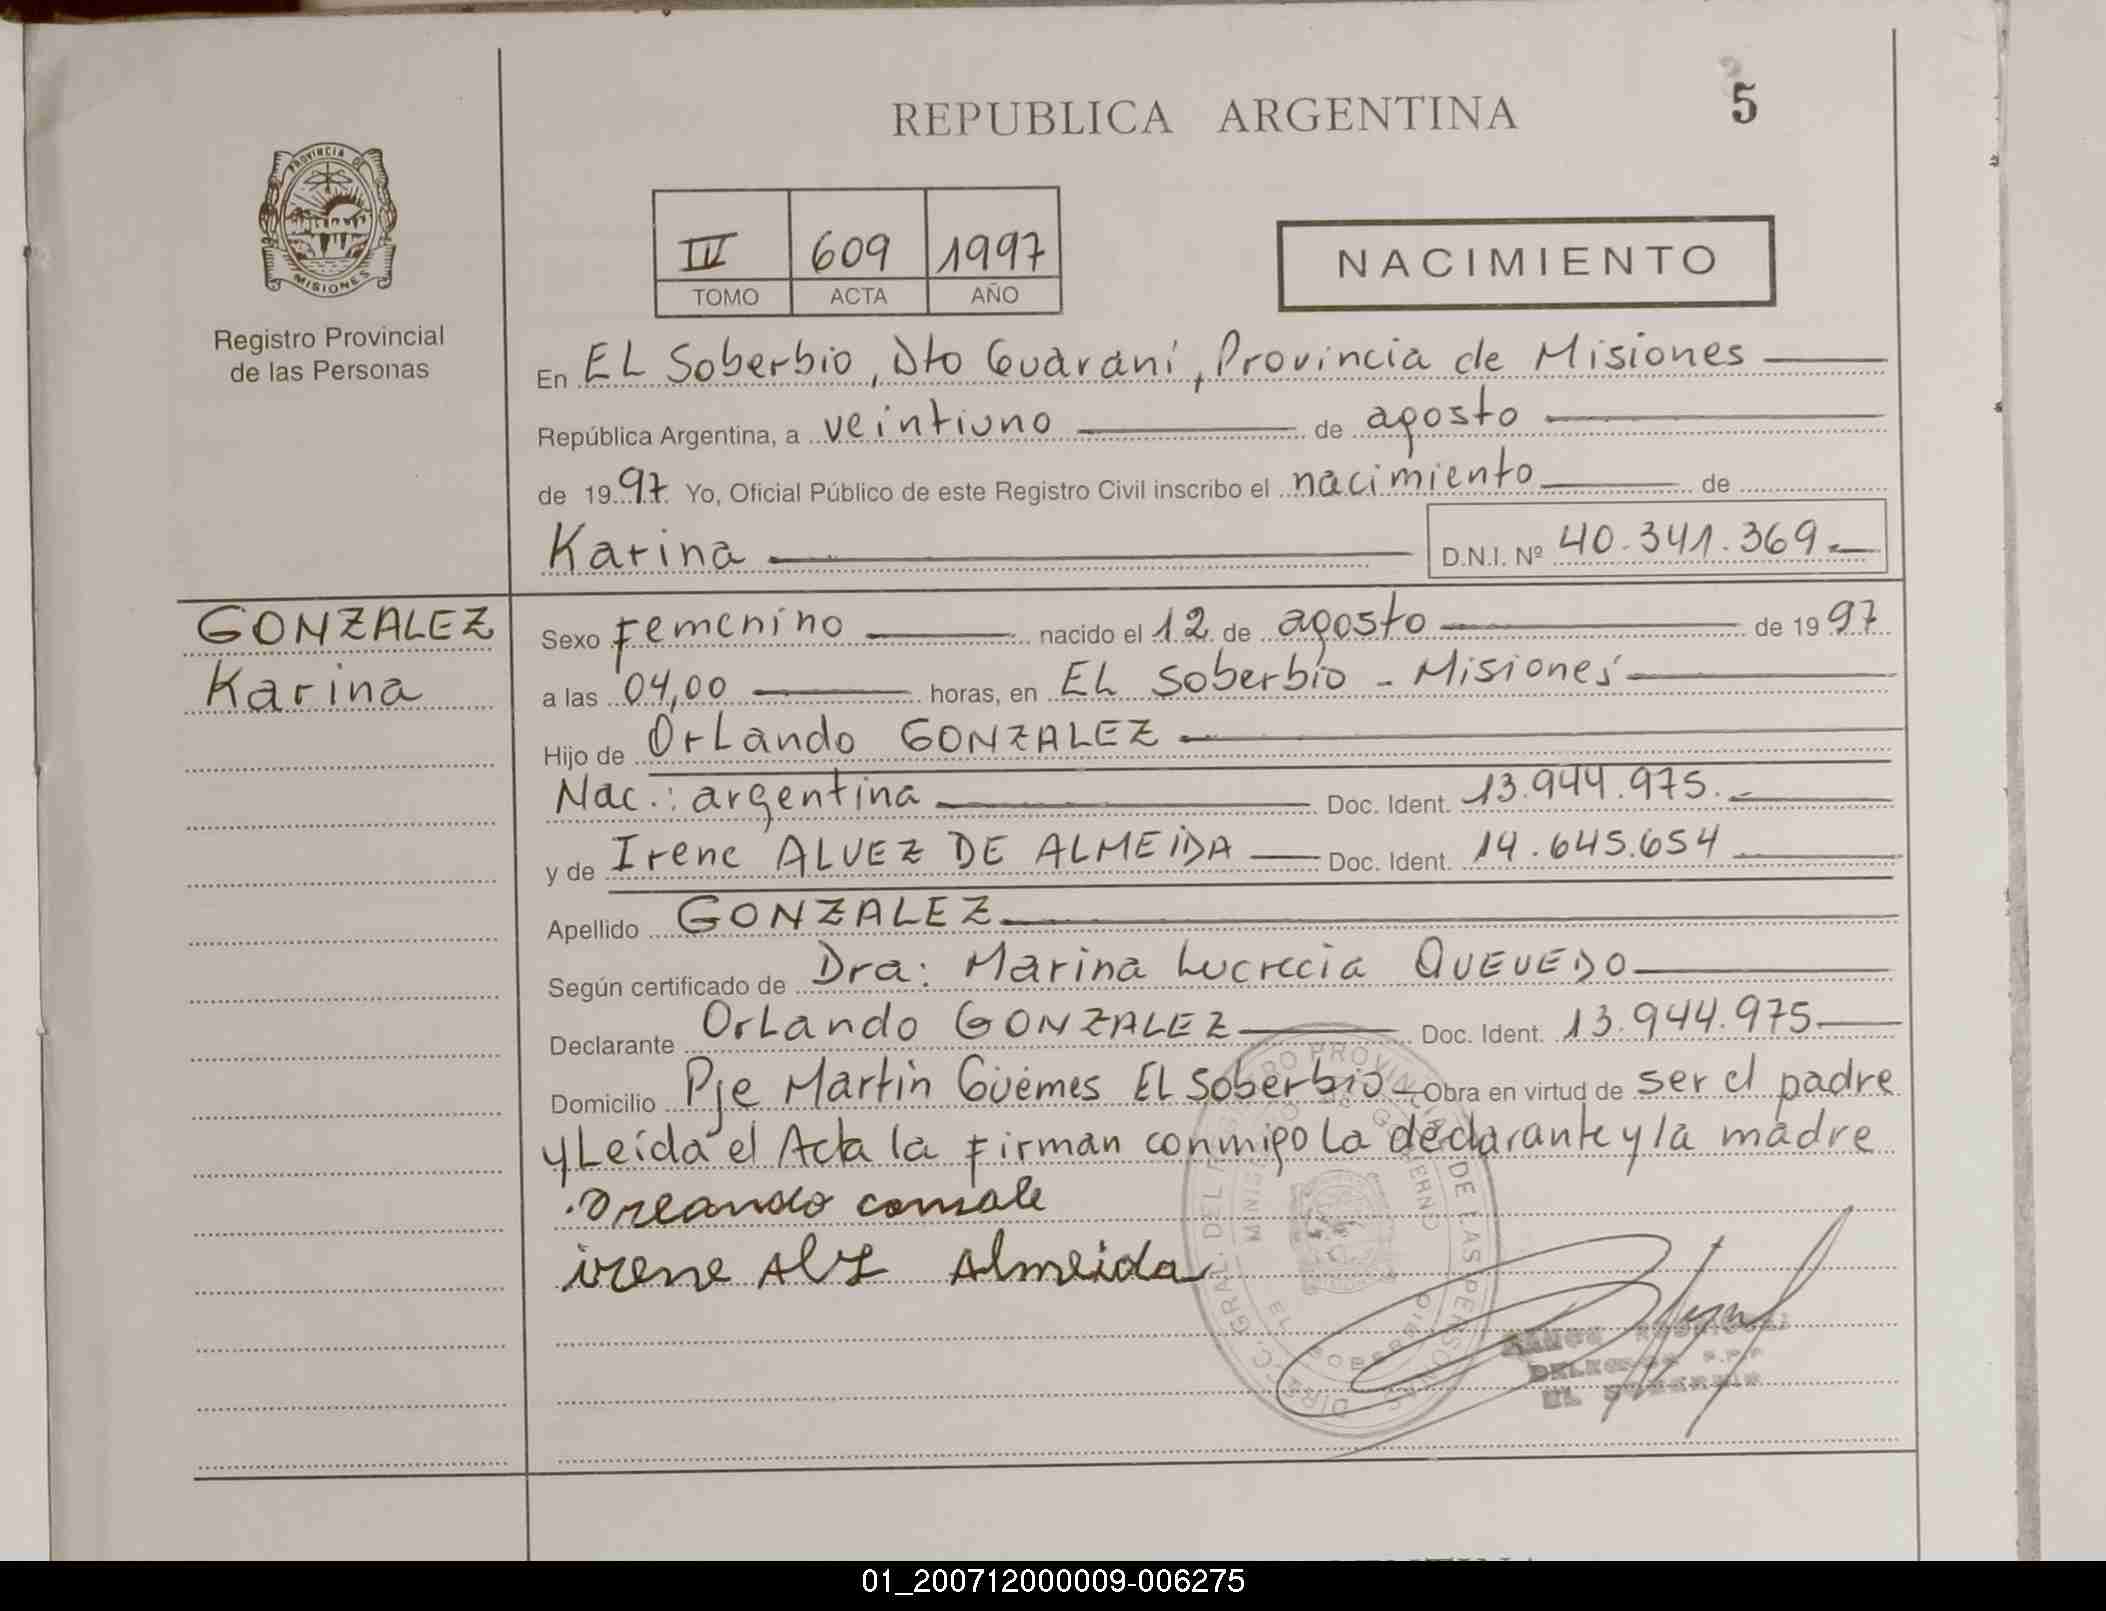 REPUBLICA ARGENTINA
5
PROVINCIA DE
MISIONES
Registro Provincial
de las Personas
IV 609 1997
TOMO ACTA AÑO
NACIMIENTO
En EL Soberbio, Dto Guaraní, Provincia de Misiones
República Argentina, a veintiuno de agosto
de 1997. Yo, Oficial Público de este Registro Civil inscribo el nacimiento de
Karina D.N.I. Nº 40.341.369.-
GONZALEZ
Karina
Sexo Femenino nacido el 12 de agosto de 1997
a las 04,00 horas, en EL Soberbio - Misiones
Hijo de Orlando GONZALEZ
Nac.: argentina Doc. Ident. 13.944.975.-
y de Irene ALVEZ DE ALMEIDA Doc. Ident. 14.645.654
Apellido GONZALEZ
Según certificado de Dra: Marina Lucrecia QUEVEDO
Declarante Orlando GONZALEZ Doc. Ident. 13.944.975
Domicilio Pje Martín Güemes EL Soberbio - Obra en virtud de ser el padre
y Leída el Acta la Firman conmigo La declarante y la madre
Orlando
irene Alz Almeida
DIRECC. GRAL. DEL REGISTRO PROVINCIAL DE LAS PERSONAS
MINISTERIO DE GOBIERNO
EL SOBERBIO
EL SOBERBIO
01_200712000009-006275